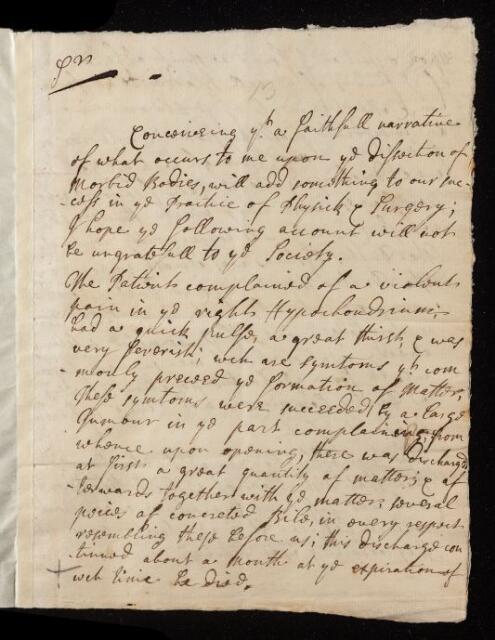 Sr
13
Conceiveing yt. a faithfull narrative
of what occurs to me upon ye dissection of
Morbid Bodies, will add something to our suc-
-cess in ye Practice of Physick & Surgery;
I hope ye following account will not
be ungratefull to ye Society.
The Patient complained of a violent
pain in ye right Hypochondrium,
had a quick pulse, a great thirst, & was
very feverish; wch are symtoms yt com
monly preceed ye formation of Matter,
These symtoms were succeeded by a large
Tumour in ye part complain'd of; from
whence upon opening, there was discharg'd
at first a great quantity of matter; & af
-terwards together with ye matter several
pieces of concreted Bile, in every respect
resembling these before us; this discharge con
-tinued about a month at ye expiration of
wch time he died.